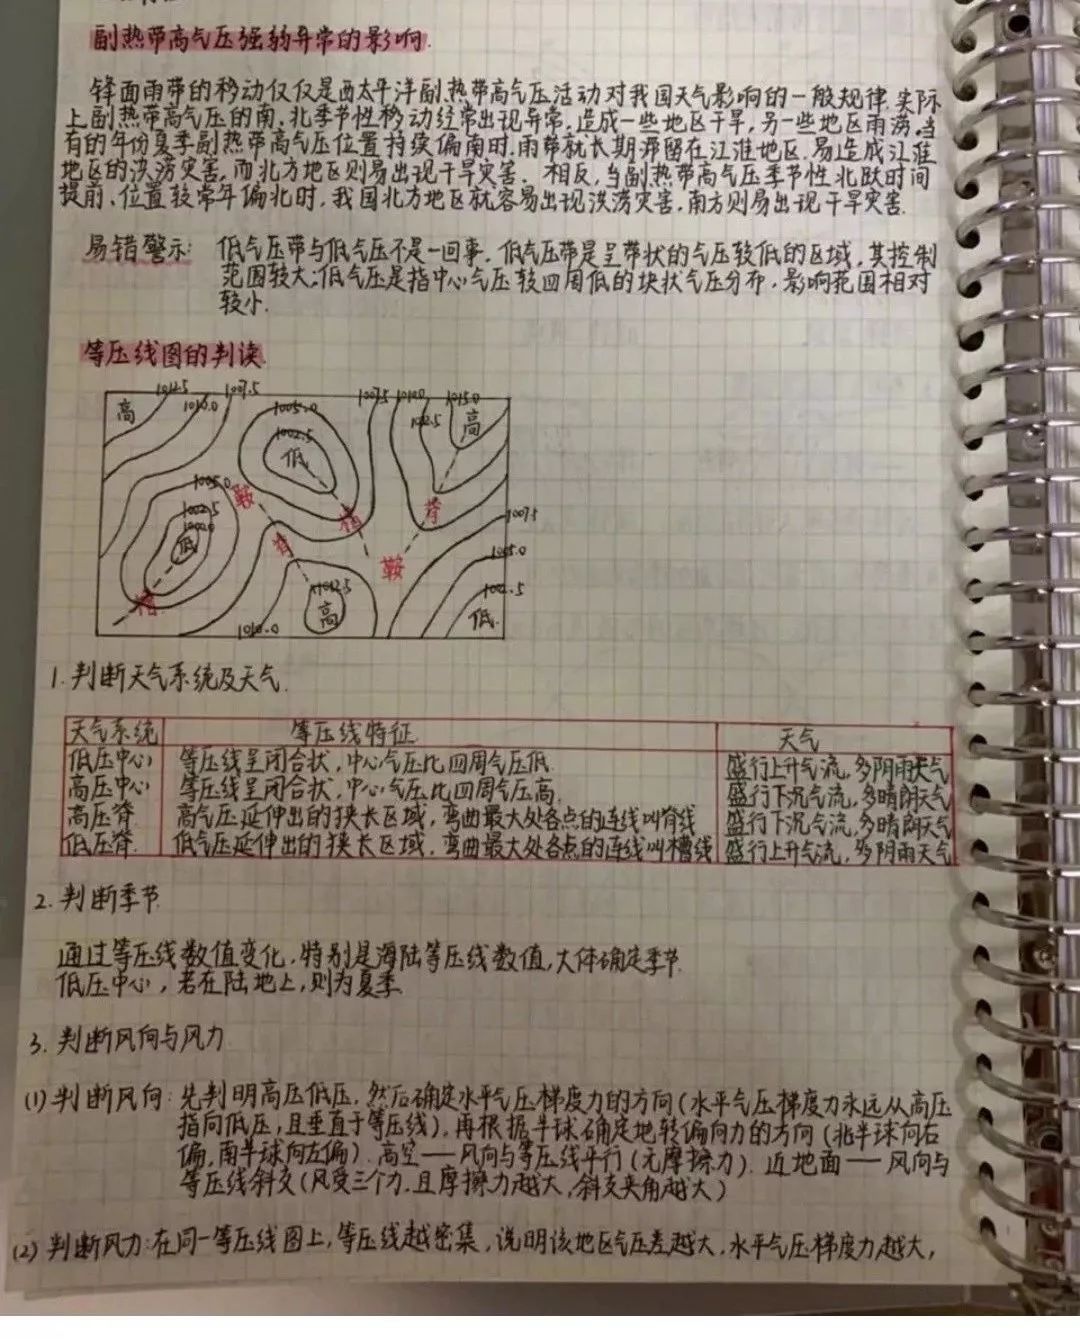 副热带高气压强弱异常的影响.
锋面雨带的移动仅仅是西太平洋副热带高气压活动对我国天气影响的一般规律.实际
上副热带高气压的南、北季节性移动经常出现异常,造成一些地区干旱,另一些地区雨涝.当
有的年份夏季副热带高气压位置持续偏南时.雨带就长期滞留在江淮地区.易造成江淮
地区的洪涝灾害,而北方地区则易出现干旱灾害. 相反,当副热带高气压季节性北跃时间
提前、位置较常年偏北时,我国北方地区就容易出现洪涝灾害,南方则易出现干旱灾害.
易错警示: 低气压带与低气压不是一回事,低气压带是呈带状的气压较低的区域,其控制
范围较大;低气压是指中心气压较四周低的块状气压分布,影响范围相对
较小.
等压线图的判读.
1012.5 1007.5 1007.5 1010.0 1015.0
高 1010.0 1005.0 高
1002.5
低
1005.0 鞍 脊
1002.5 槽 1007.5
低 脊 鞍 1005.0
槽 1012.5 1002.5
高 低
1010.0
1.判断天气系统及天气.
天气系统 等压线特征 天气
低压中心 等压线呈闭合状,中心气压比四周气压低. 盛行上升气流,多阴雨天气
高压中心 等压线呈闭合状,中心气压比四周气压高. 盛行下沉气流,多晴朗天气
高压脊 高气压延伸出的狭长区域,弯曲最大处各点的连线叫脊线 盛行下沉气流,多晴朗天气
低压脊. 低气压延伸出的狭长区域.弯曲最大处各点的连线叫槽线 盛行上升气流,多阴雨天气
2.判断季节.
通过等压线数值变化,特别是海陆等压线数值,大体确定季节.
低压中心,若在陆地上,则为夏季.
3.判断风向与风力
(1)判断风向:先判明高压低压,然后确定水平气压梯度力的方向(水平气压梯度力永远从高压
指向低压,且垂直于等压线),再根据半球确定地转偏向力的方向(北半球向右
偏,南半球向左偏).高空——风向与等压线平行(无摩擦力).近地面——风向与
等压线斜交(风受三个力.且摩擦力越大,斜交夹角越大)
(2)判断风力:在同一等压线图上,等压线越密集,说明该地区气压差越大,水平气压梯度力越大,